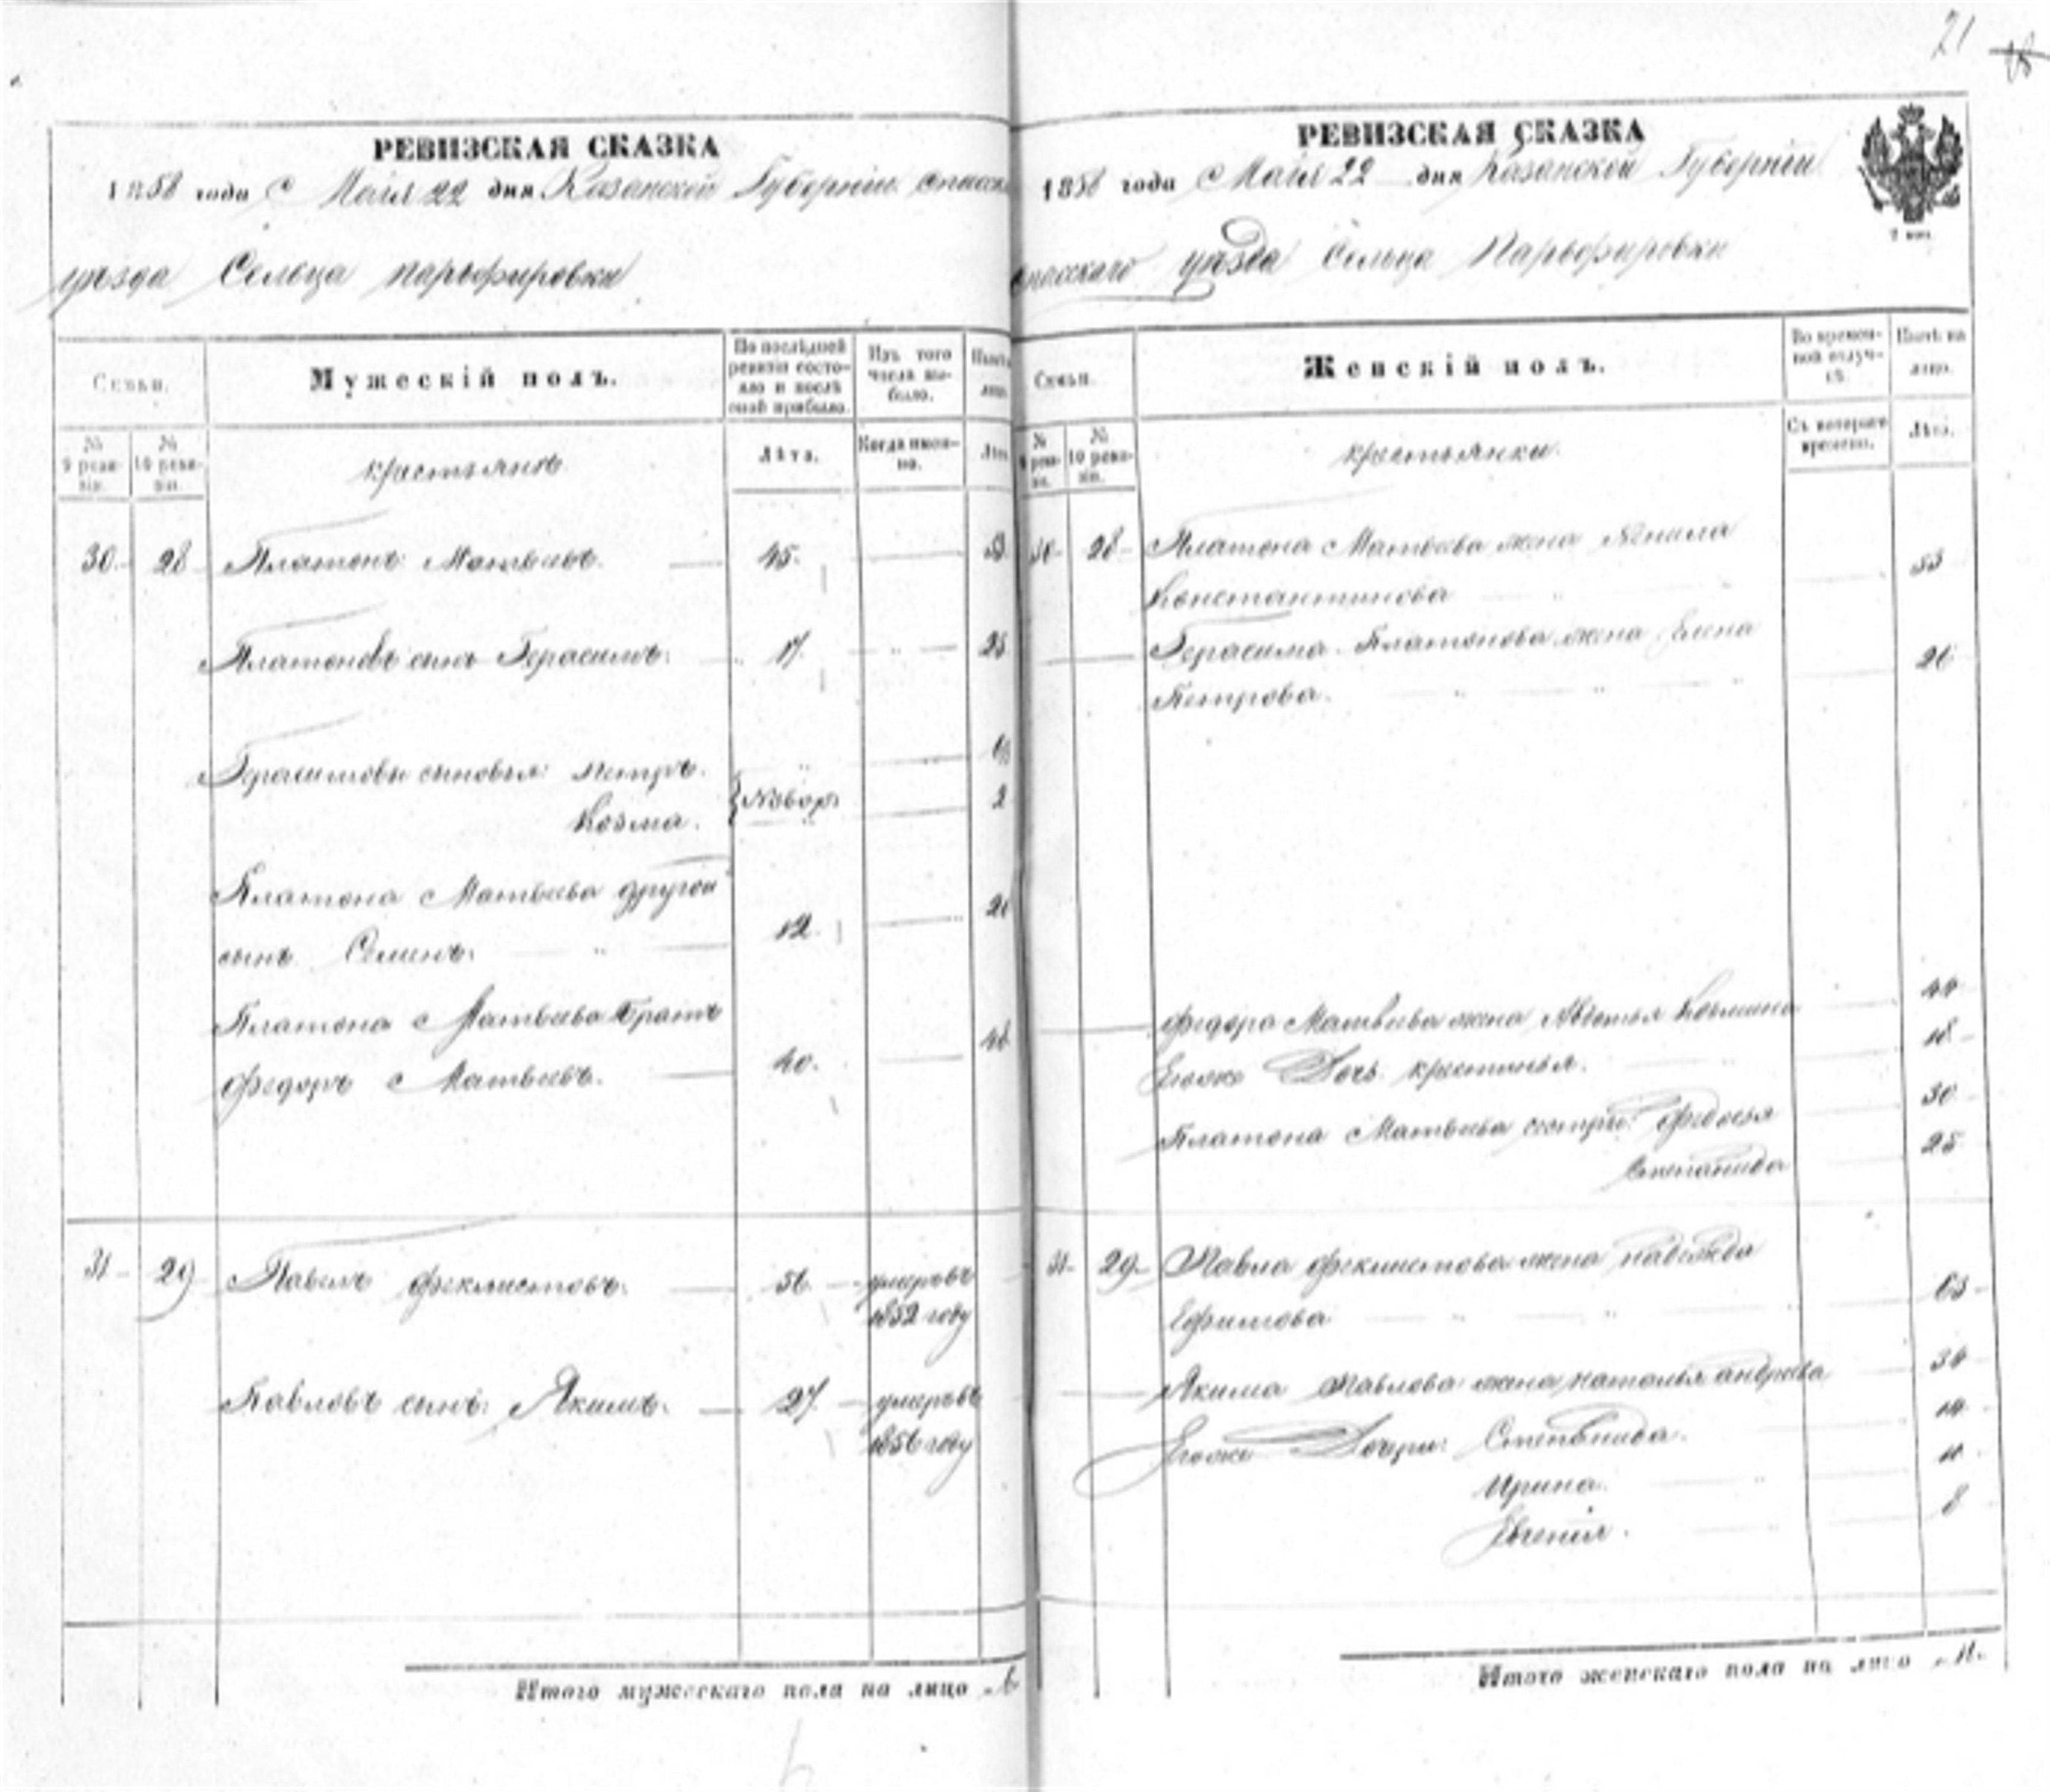 21
РЕВИЗСКАЯ СКАЗКА
1858 года Маія 22 дня Казанской Губерніи Спасск
уѣзда Сельца Парѳировки
Семьи.
Мужескій полъ.
По послѣдней ревизіи состояло и послѣ оной прибыло.
Изъ того числа выбыло.
Нынѣ на лицо.
№ 9 ревизіи.
№ 10 ревизіи.
крестьянъ
Лѣта.
Когда именно.
Лѣта.
30. 28 Платонъ Матвѣевъ. 45. 53
Платоновъ сынъ Герасимъ. 17. 25
Герасимовы сыновья: Петръ.
Козма. Новор. 2
Платона Матвѣева другой
сынъ Семинъ. 12. 20
Платона Матвѣева братъ
Федоръ Матвѣевъ. 40. 48
31 29 Павелъ Феклистовъ. 56 умеръ въ
1852 году
Павловъ сынъ: Якимъ. 27 умеръ въ
1856 году
Итого мужескаго пола на лицо
РЕВИЗСКАЯ СКАЗКА
1858 года Маія 22 дня Казанской Губерніи
Спасскаго уѣзда Сельца Парьфировки
Семьи.
Женскій полъ.
Во временной отлучкѣ.
Нынѣ на лицо.
№ 9 ревизіи.
№ 10 ревизіи.
крестьянки.
Съ котораго времени.
Лѣта.
30 28 Платона Матвѣева жена Ненила
Константинова 53
Герасима Платонова жена Елена
Петрова. 26
Федора Матвѣева жена Авдотья Козмина 44
Егоже Дочь крестинья. 18
Платона Матвѣева сестры: Федосья 30
Степанида 25
31 29 Павла Феклистова жена Надежда
Ефимова 63
Якима Павлова жена Наталья андрѣева 34
Егоже Дочери: Степанида. 14
Ирина. 11
Евгенія. 8
Итого женскаго пола на лицо 11